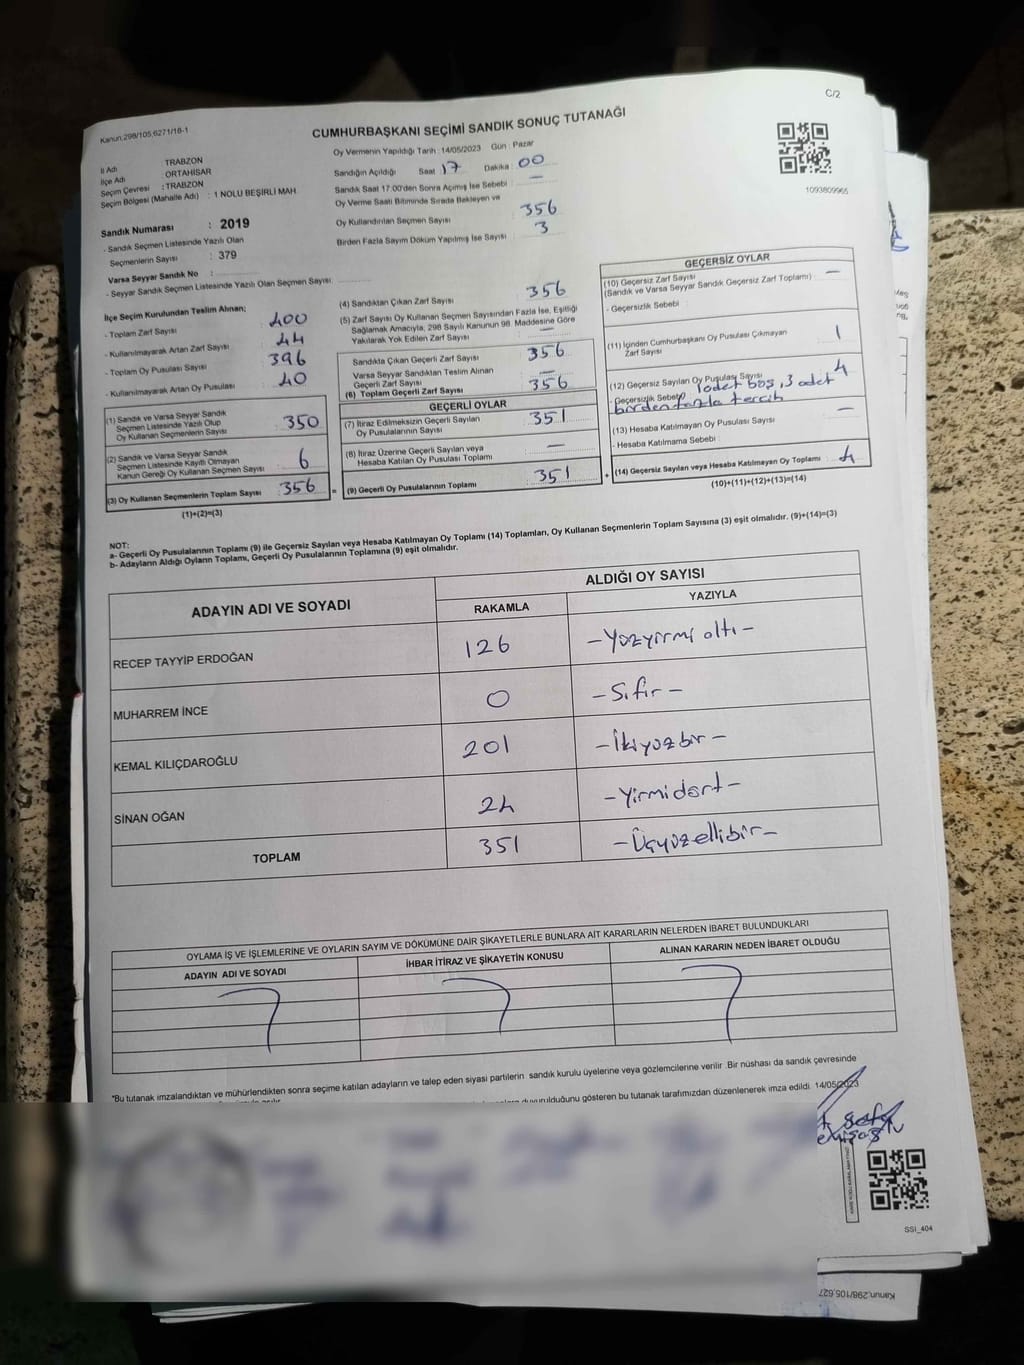 C/2
Kanun:298/105,6271/16-1
CUMHURBAŞKANI SEÇİMİ SANDIK SONUÇ TUTANAĞI
İl Adı : TRABZON
İlçe Adı : ORTAHİSAR
Seçim Çevresi : TRABZON
Seçim Bölgesi (Mahalle Adı) : 1 NOLU BEŞİRLİ MAH.
Sandık Numarası : 2019
- Sandık Seçmen Listesinde Yazılı Olan
Seçmenlerin Sayısı : 379
Varsa Seyyar Sandık No :
- Seyyar Sandık Seçmen Listesinde Yazılı Olan Seçmen Sayısı:
Oy Vermenin Yapıldığı Tarih : 14/05/2023 Gün : Pazar
Sandığın Açıldığı Saat : 17 Dakika : 00
Sandık Saat 17.00'den Sonra Açımış İse Sebebi : —
Oy Verme Saati Bitiminde Sırada Bekleyen ve
Oy Kullandırılan Seçmen Sayısı : 356
Birden Fazla Sayım Döküm Yapılmış İse Sayısı : 3
1093809965
İlçe Seçim Kurulundan Teslim Alınan;
- Toplam Zarf Sayısı : 400
- Kullanılmayarak Artan Zarf Sayısı : 44
- Toplam Oy Pusulası Sayısı : 396
- Kullanılmayarak Artan Oy Pusulası : 40
(1) Sandık ve Varsa Seyyar Sandık
Seçmen Listesinde Yazılı Olup
Oy Kullanan Seçmenlerin Sayısı : 350
(2) Sandık ve Varsa Seyyar Sandık
Seçmen Listesinde Kayıtlı Olmayan
Kanun Gereği Oy Kullanan Seçmen Sayısı : 6
(3) Oy Kullanan Seçmenlerin Toplam Sayısı : 356
(1)+(2)=(3)
(4) Sandıktan Çıkan Zarf Sayısı : 356
(5) Zarf Sayısı Oy Kullanan Seçmen Sayısından Fazla İse, Eşitliği
Sağlamak Amacıyla, 298 Sayılı Kanunun 98. Maddesine Göre
Yakılarak Yok Edilen Zarf Sayısı : —
Sandıkta Çıkan Geçerli Zarf Sayısı : 356
Varsa Seyyar Sandıktan Teslim Alınan
Geçerli Zarf Sayısı : —
(6) Toplam Geçerli Zarf Sayısı : 356
GEÇERLİ OYLAR
(7) İtiraz Edilmeksizin Geçerli Sayılan
Oy Pusulalarının Sayısı : 351
(8) İtiraz Üzerine Geçerli Sayılan veya
Hesaba Katılan Oy Pusulası Toplamı : —
= (9) Geçerli Oy Pusulalarının Toplamı : 351
GEÇERSİZ OYLAR
(10) Geçersiz Zarf Sayısı
(Sandık ve Varsa Seyyar Sandık Geçersiz Zarf Toplamı) : —
- Geçersizlik Sebebi :
(11) İçinden Cumhurbaşkanı Oy Pusulası Çıkmayan
Zarf Sayısı : 1
(12) Geçersiz Sayılan Oy Pusulası Sayısı : 4
- Geçersizlik Sebebi : 1 adet boş, 3 adet
birden fazla tercih
(13) Hesaba Katılmayan Oy Pusulası Sayısı : —
- Hesaba Katılmama Sebebi :
+ (14) Geçersiz Sayılan veya Hesaba Katılmayan Oy Toplamı : 4
(10)+(11)+(12)+(13)=(14)
NOT:
a- Geçerli Oy Pusulalarının Toplamı (9) ile Geçersiz Sayılan veya Hesaba Katılmayan Oy Toplamı (14) Toplamları, Oy Kullanan Seçmenlerin Toplam Sayısına (3) eşit olmalıdır. (9)+(14)=(3)
b- Adayların Aldığı Oyların Toplamı, Geçerli Oy Pusulalarının Toplamına (9) eşit olmalıdır.
ADAYIN ADI VE SOYADI
ALDIĞI OY SAYISI
RAKAMLA YAZIYLA
RECEP TAYYİP ERDOĞAN 126 - Yüzyirmi altı -
MUHARREM İNCE 0 - Sıfır -
KEMAL KILIÇDAROĞLU 201 - İkiyüzbir -
SİNAN OĞAN 24 - Yirmidört -
TOPLAM 351 - Üçyüzellibir -
OYLAMA İŞ VE İŞLEMLERİNE VE OYLARIN SAYIM VE DÖKÜMÜNE DAİR ŞİKAYETLERLE BUNLARA AİT KARARLARIN NELERDEN İBARET BULUNDUKLARI
ADAYIN ADI VE SOYADI İHBAR İTİRAZ VE ŞİKAYETİN KONUSU ALINAN KARARIN NEDEN İBARET OLDUĞU
"Bu tutanak imzalandıktan ve mühürlendikten sonra seçime katılan adayların ve talep eden siyasi partilerin sandık kurulu üyelerine veya gözlemcilerine verilir .Bir nüshası da sandık çevresinde
duyurulduğunu gösteren bu tutanak tarafımızdan düzenlenerek imza edildi. 14/05/2023
SSI_404
Kanun:298/105,627